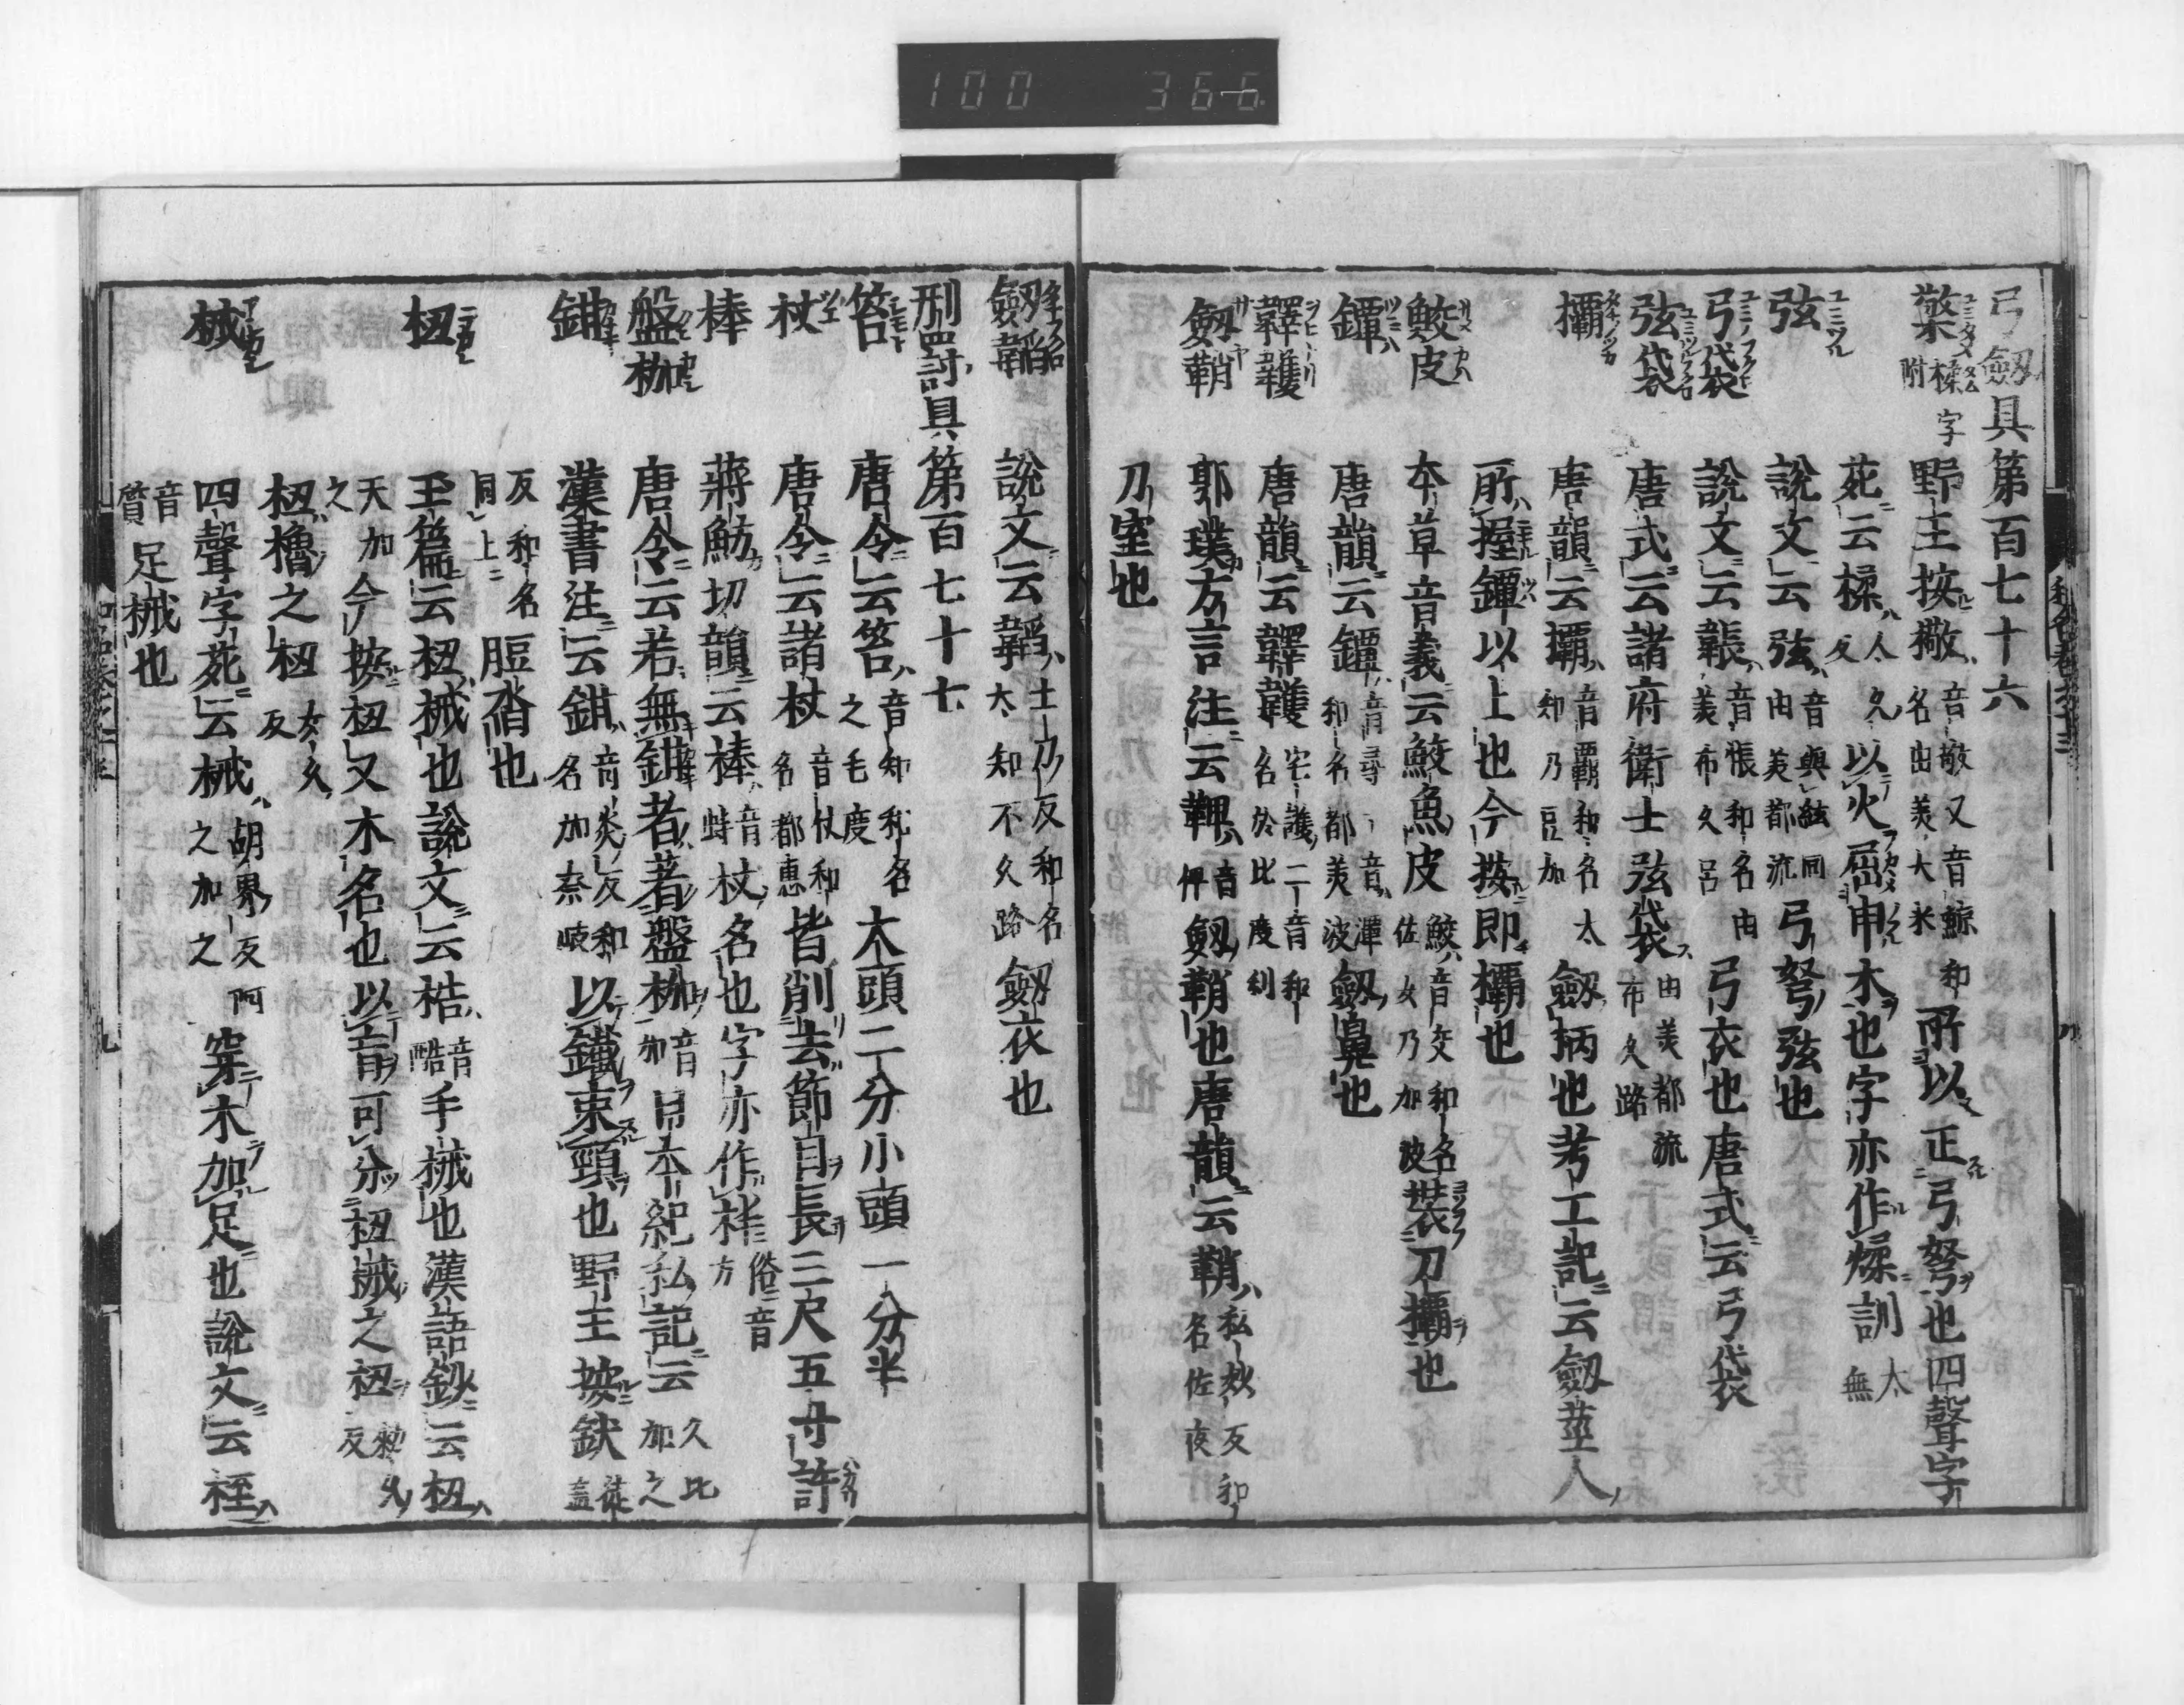 100 366
弓劔具第百七十六
檠 揉字附 野王按撒 音敬又音鯨和名由美大米 所以正弓弩也四聲字
苑云揉 人久反 以火屈申木也字亦作煣訓 太無
弦 說文云弦 音與絃同由美都流 弓弩弦也
弓袋 說文云韔 音悵和名由美布久呂 弓衣也唐式云弓袋
弦袋 唐式云諸府衛士弦袋 由美都流布久路
欛 唐韻云欛 音覇和名太知乃豆加 劔柄也考工記云劔莖人
所握鐔以上也今按即欛也
鮫皮 本草音義云鮫魚皮 鮫音交和名佐女乃加波 裝刀欛也
鐔 唐韻云鐔 音尋一音潭和名都美波 劔鼻也
韚韄 唐韻云韚韄 宅護二音和名於比度利
劔鞘 郭璞方言注云鞞 音俾 劔鞘也唐韻云鞘 私妙反和名佐夜
刀室也
劔韜 說文云韜 土刀反和名太知不久路 劔衣也
刑罰具第百七十七
笞 唐令云笞 音知和名之毛度 大頭二分小頭一分半
杖 唐令云諸杖 音仗和名都惠 皆削去節目長三尺五寸許
棒 蔣魴切韻云棒 音蚌 杖名也字亦作棓 俗音方
盤枷 唐令云若無鉗者著盤枷 音加 日本紀私記云 久比加之
鉗 漢書注云鉗 音炎反和名加奈岐 以鐵束頸也野王按釱 徒蓋
反和名同上 脛沓也
杻 玉篇云杻械也說文云梏 音酷 手械也漢語鈔云杻
天加之 今按杻又木名也以音可分杻械之杻 勅久反
杻櫓之杻 女久反
械 四聲字苑云械 胡界反阿之加之 穿木加足也說文云桎
音質 足械也